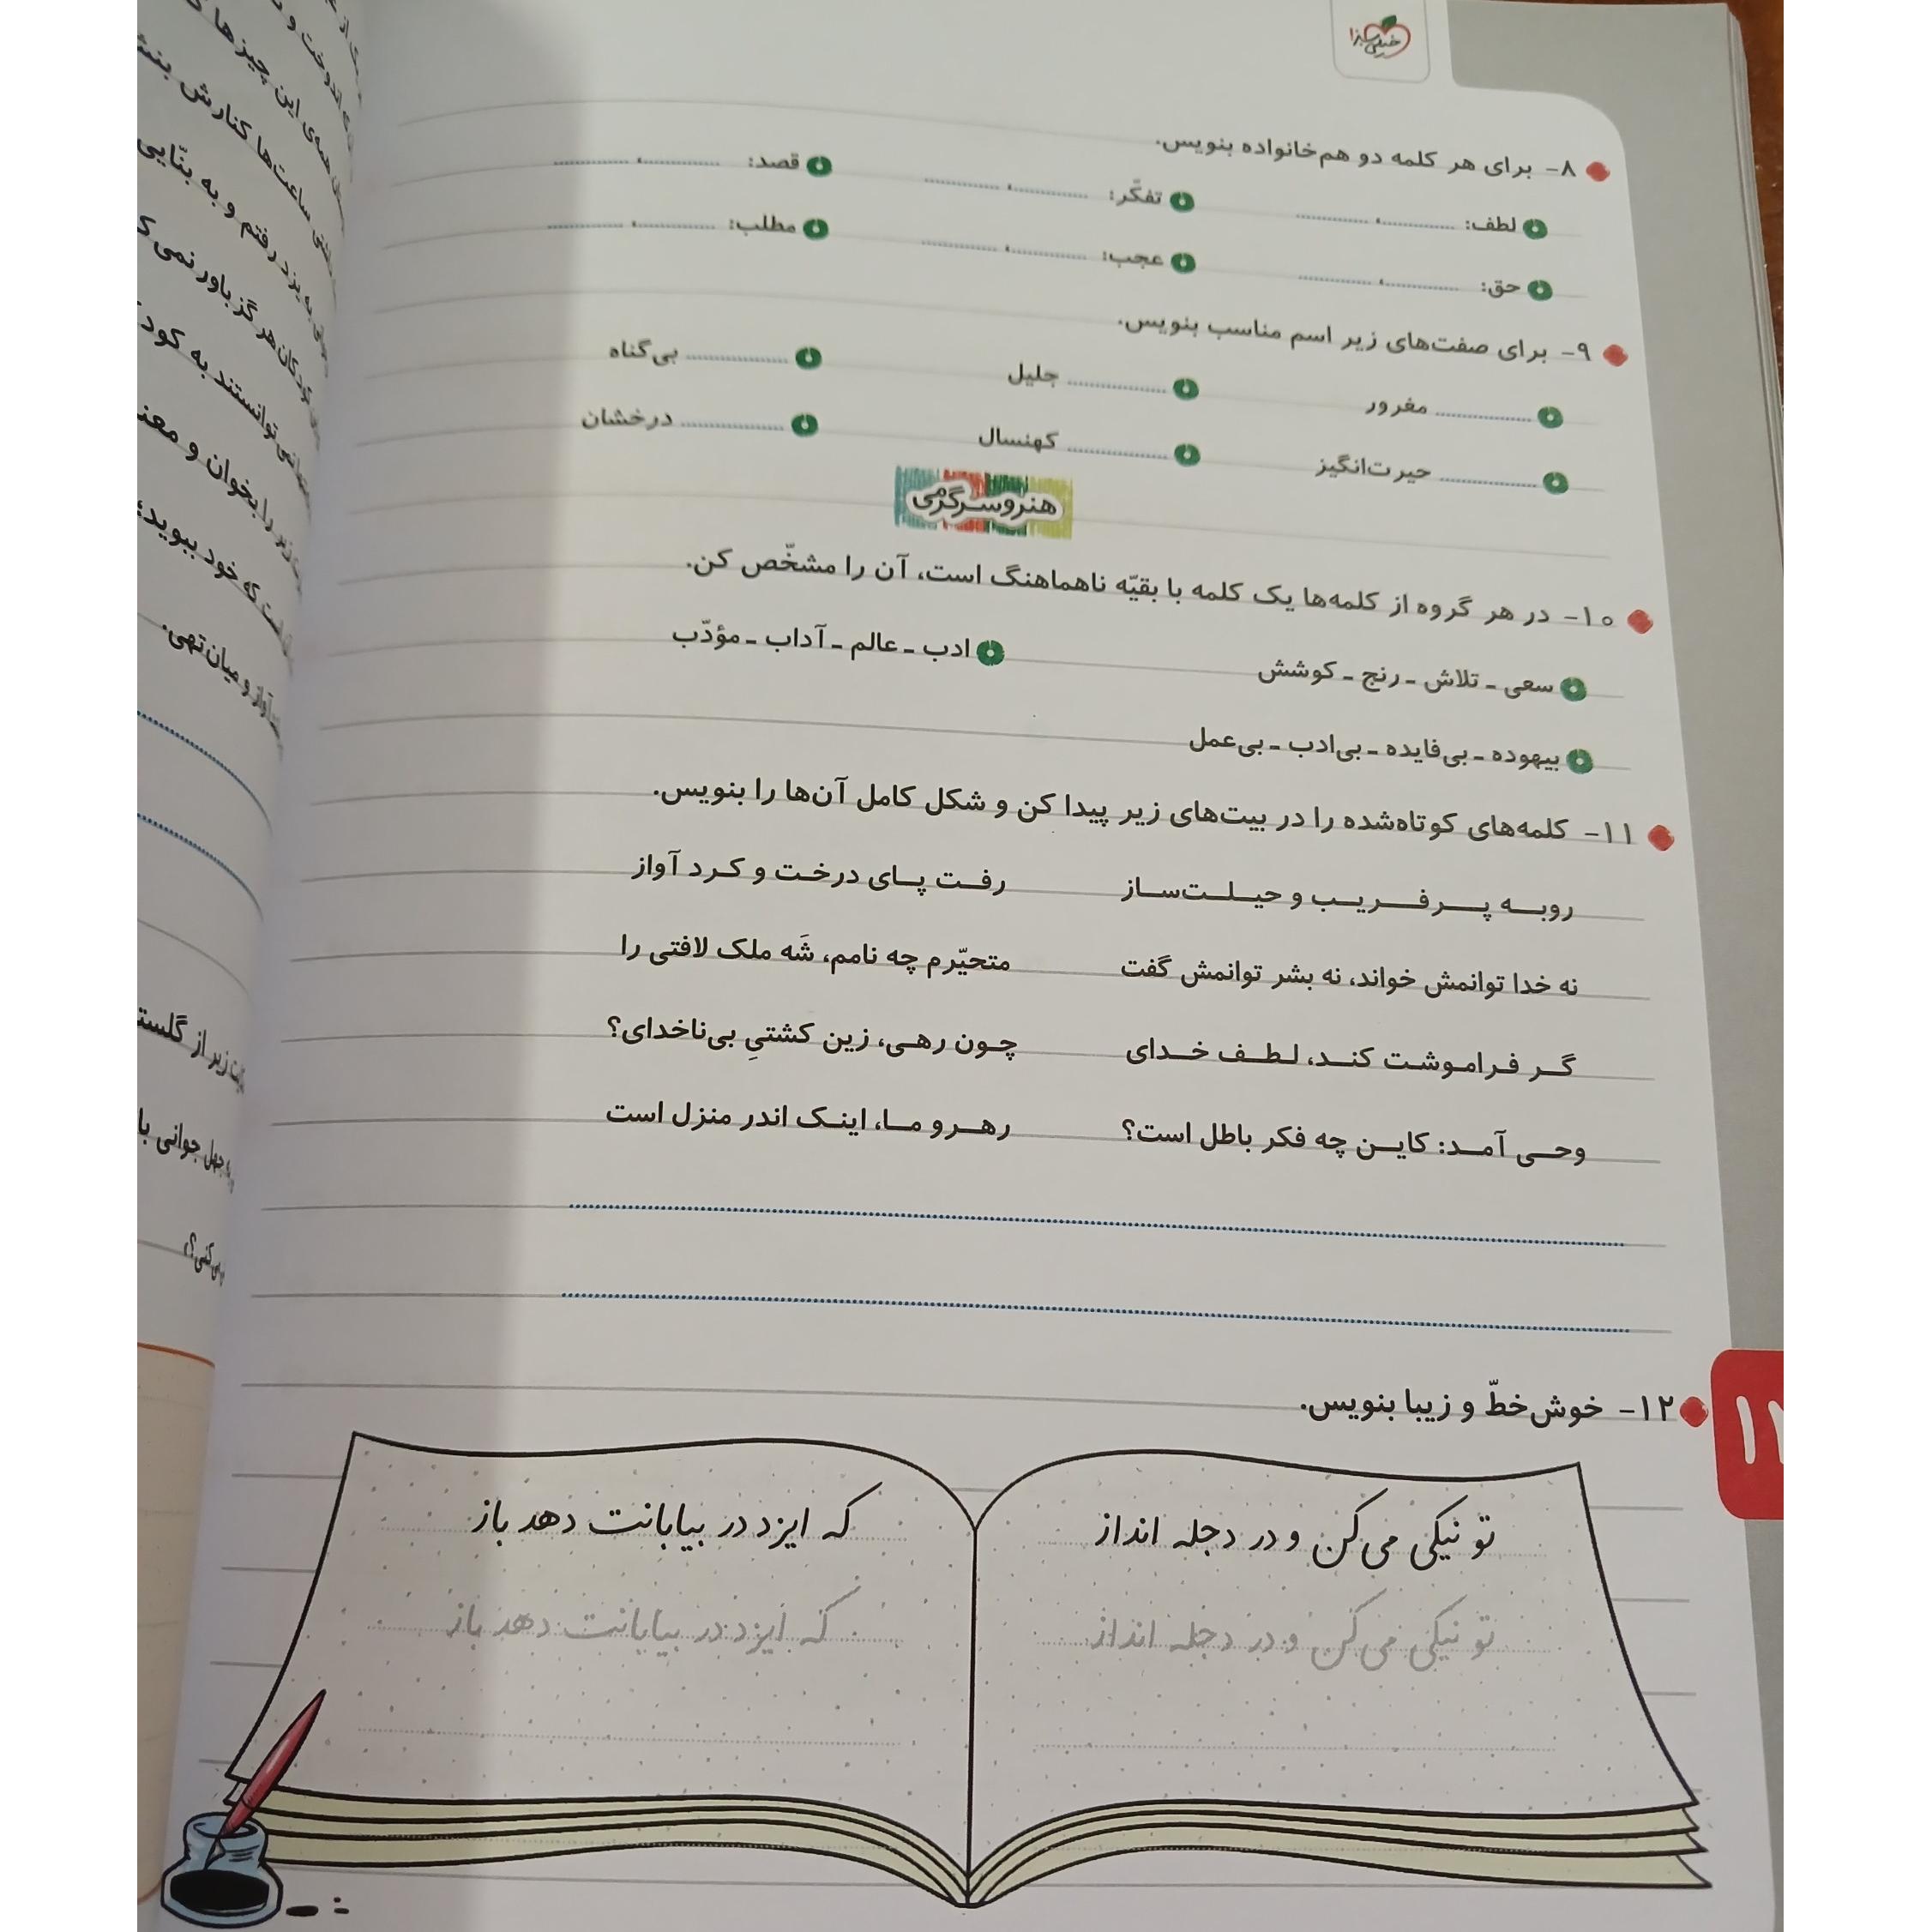 خیلی سبز!
۸- برای هر کلمه دو هم‌خانواده بنویس.
لطف: ................، ................ تفکّر: ................، ................ قصد: ................، ................
حق: ................، ................ عجب: ................، ................ مطلب: ................، ................
۹- برای صفت‌های زیر اسم مناسب بنویس.
................ مغرور ................ جلیل ................ بی‌گناه
................ حیرت‌انگیز ................ کهنسال ................ درخشان
هنر و سرگرمی
۱۰- در هر گروه از کلمه‌ها یک کلمه با بقیّه ناهماهنگ است، آن را مشخّص کن.
سعی ـ تلاش ـ رنج ـ کوشش ادب ـ عالم ـ آداب ـ مؤدّب
بیهوده ـ بی‌فایده ـ بی‌ادب ـ بی‌عمل
۱۱- کلمه‌های کوتاه‌شده را در بیت‌های زیر پیدا کن و شکل کامل آن‌ها را بنویس.
روبه پرفریب و حیلت‌ساز رفت پای درخت و کرد آواز
نه خدا توانمش خواند، نه بشر توانمش گفت متحیّرم چه نامم، شَه ملک لافتی را
گر فراموشت کند، لطف خدای چون رهی، زین کشتیِ بی‌ناخدای؟
وحی آمد: کاین چه فکر باطل است؟ رهرو ما، اینک اندر منزل است
۱۲- خوش‌خطّ و زیبا بنویس.
تو نیکی می‌کن و در دجله انداز که ایزد در بیابانت دهد باز
تو نیکی می‌کن و در دجله انداز که ایزد در بیابانت دهد باز
این چیزها
ساعت‌ها کنارش
به یزد رفتم و به بنّایی
هرگز باور نمی‌ک
توانستند به کود
را بخوان و معن
که خود ببوید،
و میان‌تهی.
زیر از گلست
جهل جوانی با